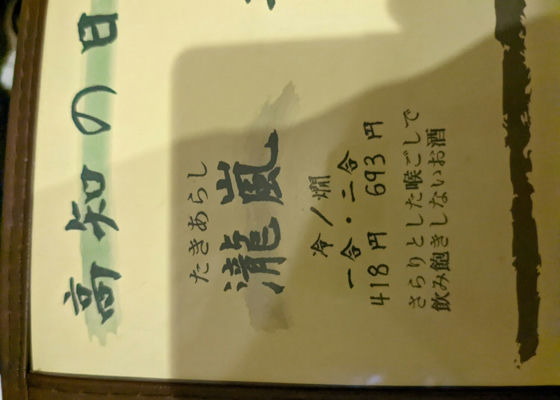 高知の日
たきあらし
瀧嵐
冷／燗
一合・二合
418円 693円
さらりとした喉ごしで
飲み飽きしないお酒